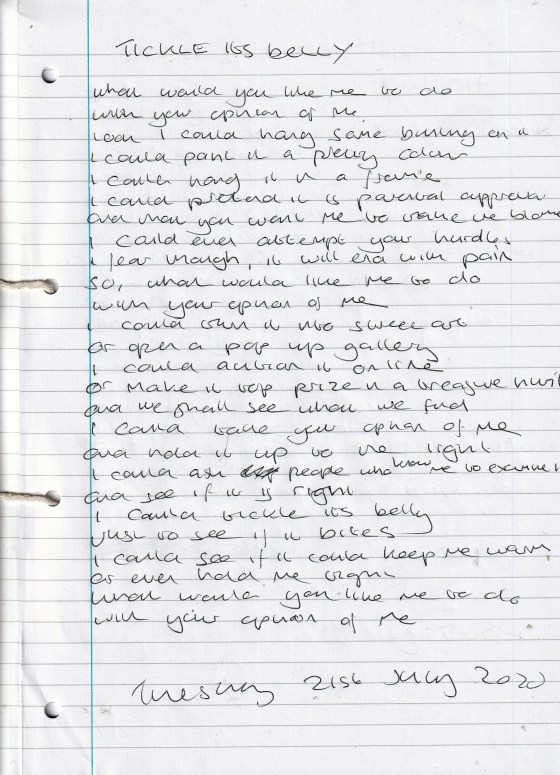 TICKLE ITS BELLY
what would you like me to do
with your opinion of me
look I could hang some bunting on it
I could paint it a pretty colour
I could hang it in a frame
I could pretend it is parental approval
and then you want me to take the blame
I could even attempt your hurdles
I fear though, it will end with pain
So, what would like me to do
with your opinion of me
I could turn it into sweet art
or open a pop up gallery
I could auction it online
or make it top prize in a treasure hunt
and we shall see what we find
I could take your opinion of me
and hold it up to the light
I could ask people who know me to examine it
and see if it is right
I could tickle its belly
Just to see if it bites
I could see if it could keep me warm
or even hold me tight
What would you like me to do
with your opinion of me
Tuesday 21st July 2020